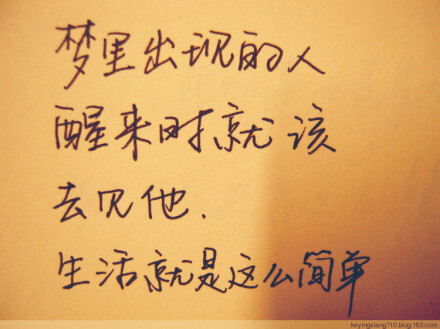 梦里出现的人
醒来时就该
去见他.
生活就是这么简单
keyingxiang710.blog.163.com